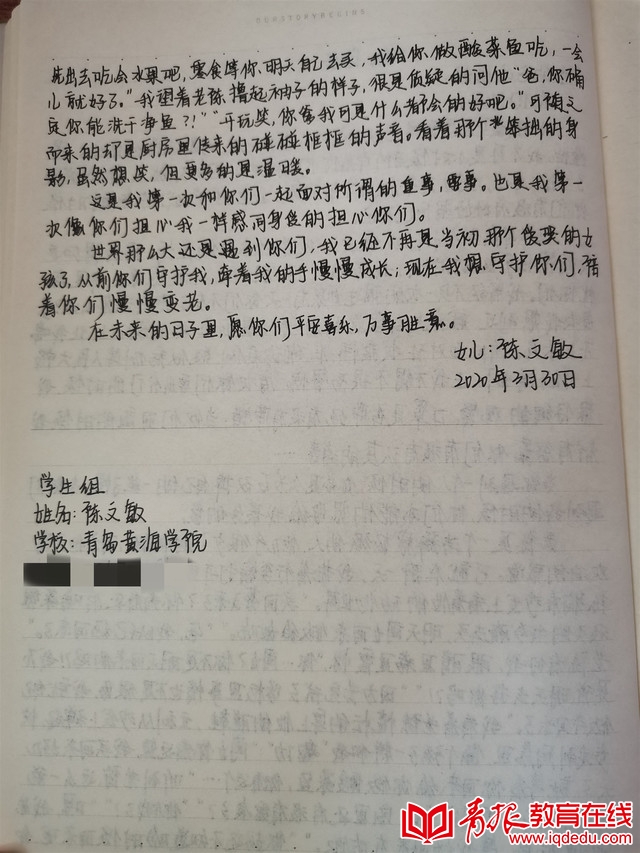 先出去吃会水果吧，零食等你明天自己去买，我给你做酸菜鱼吃，一会
儿就好了。”我望着老陈撸起袖子的样子，很是质疑的问他“爸，你确
定你能洗干净鱼？！”“开玩笑，你爸我可是什么都会的好吧。”可随之
而来的却是厨房里传来的碰碰框框的声音。看着那个笨拙的身
影，虽然想笑，但更多的是温暖。
这是我第一次和你们一起面对所谓的重事，要事。也是我第一
次像你们担心我一样感同身受的担心你们。
世界那么大还是遇到你们，我已经不再是当初那个爱哭的女
孩了，从前你们守护我，牵着我的手慢慢成长；现在我想守护你们，陪
着你们慢慢变老。
在未来的日子里，愿你们平安喜乐，万事胜意。
女儿：陈文敏
2020年3月30日
学生组
姓名：陈文敏
学校：青岛黄海学院
青报教育在线
www.iqdedu.com